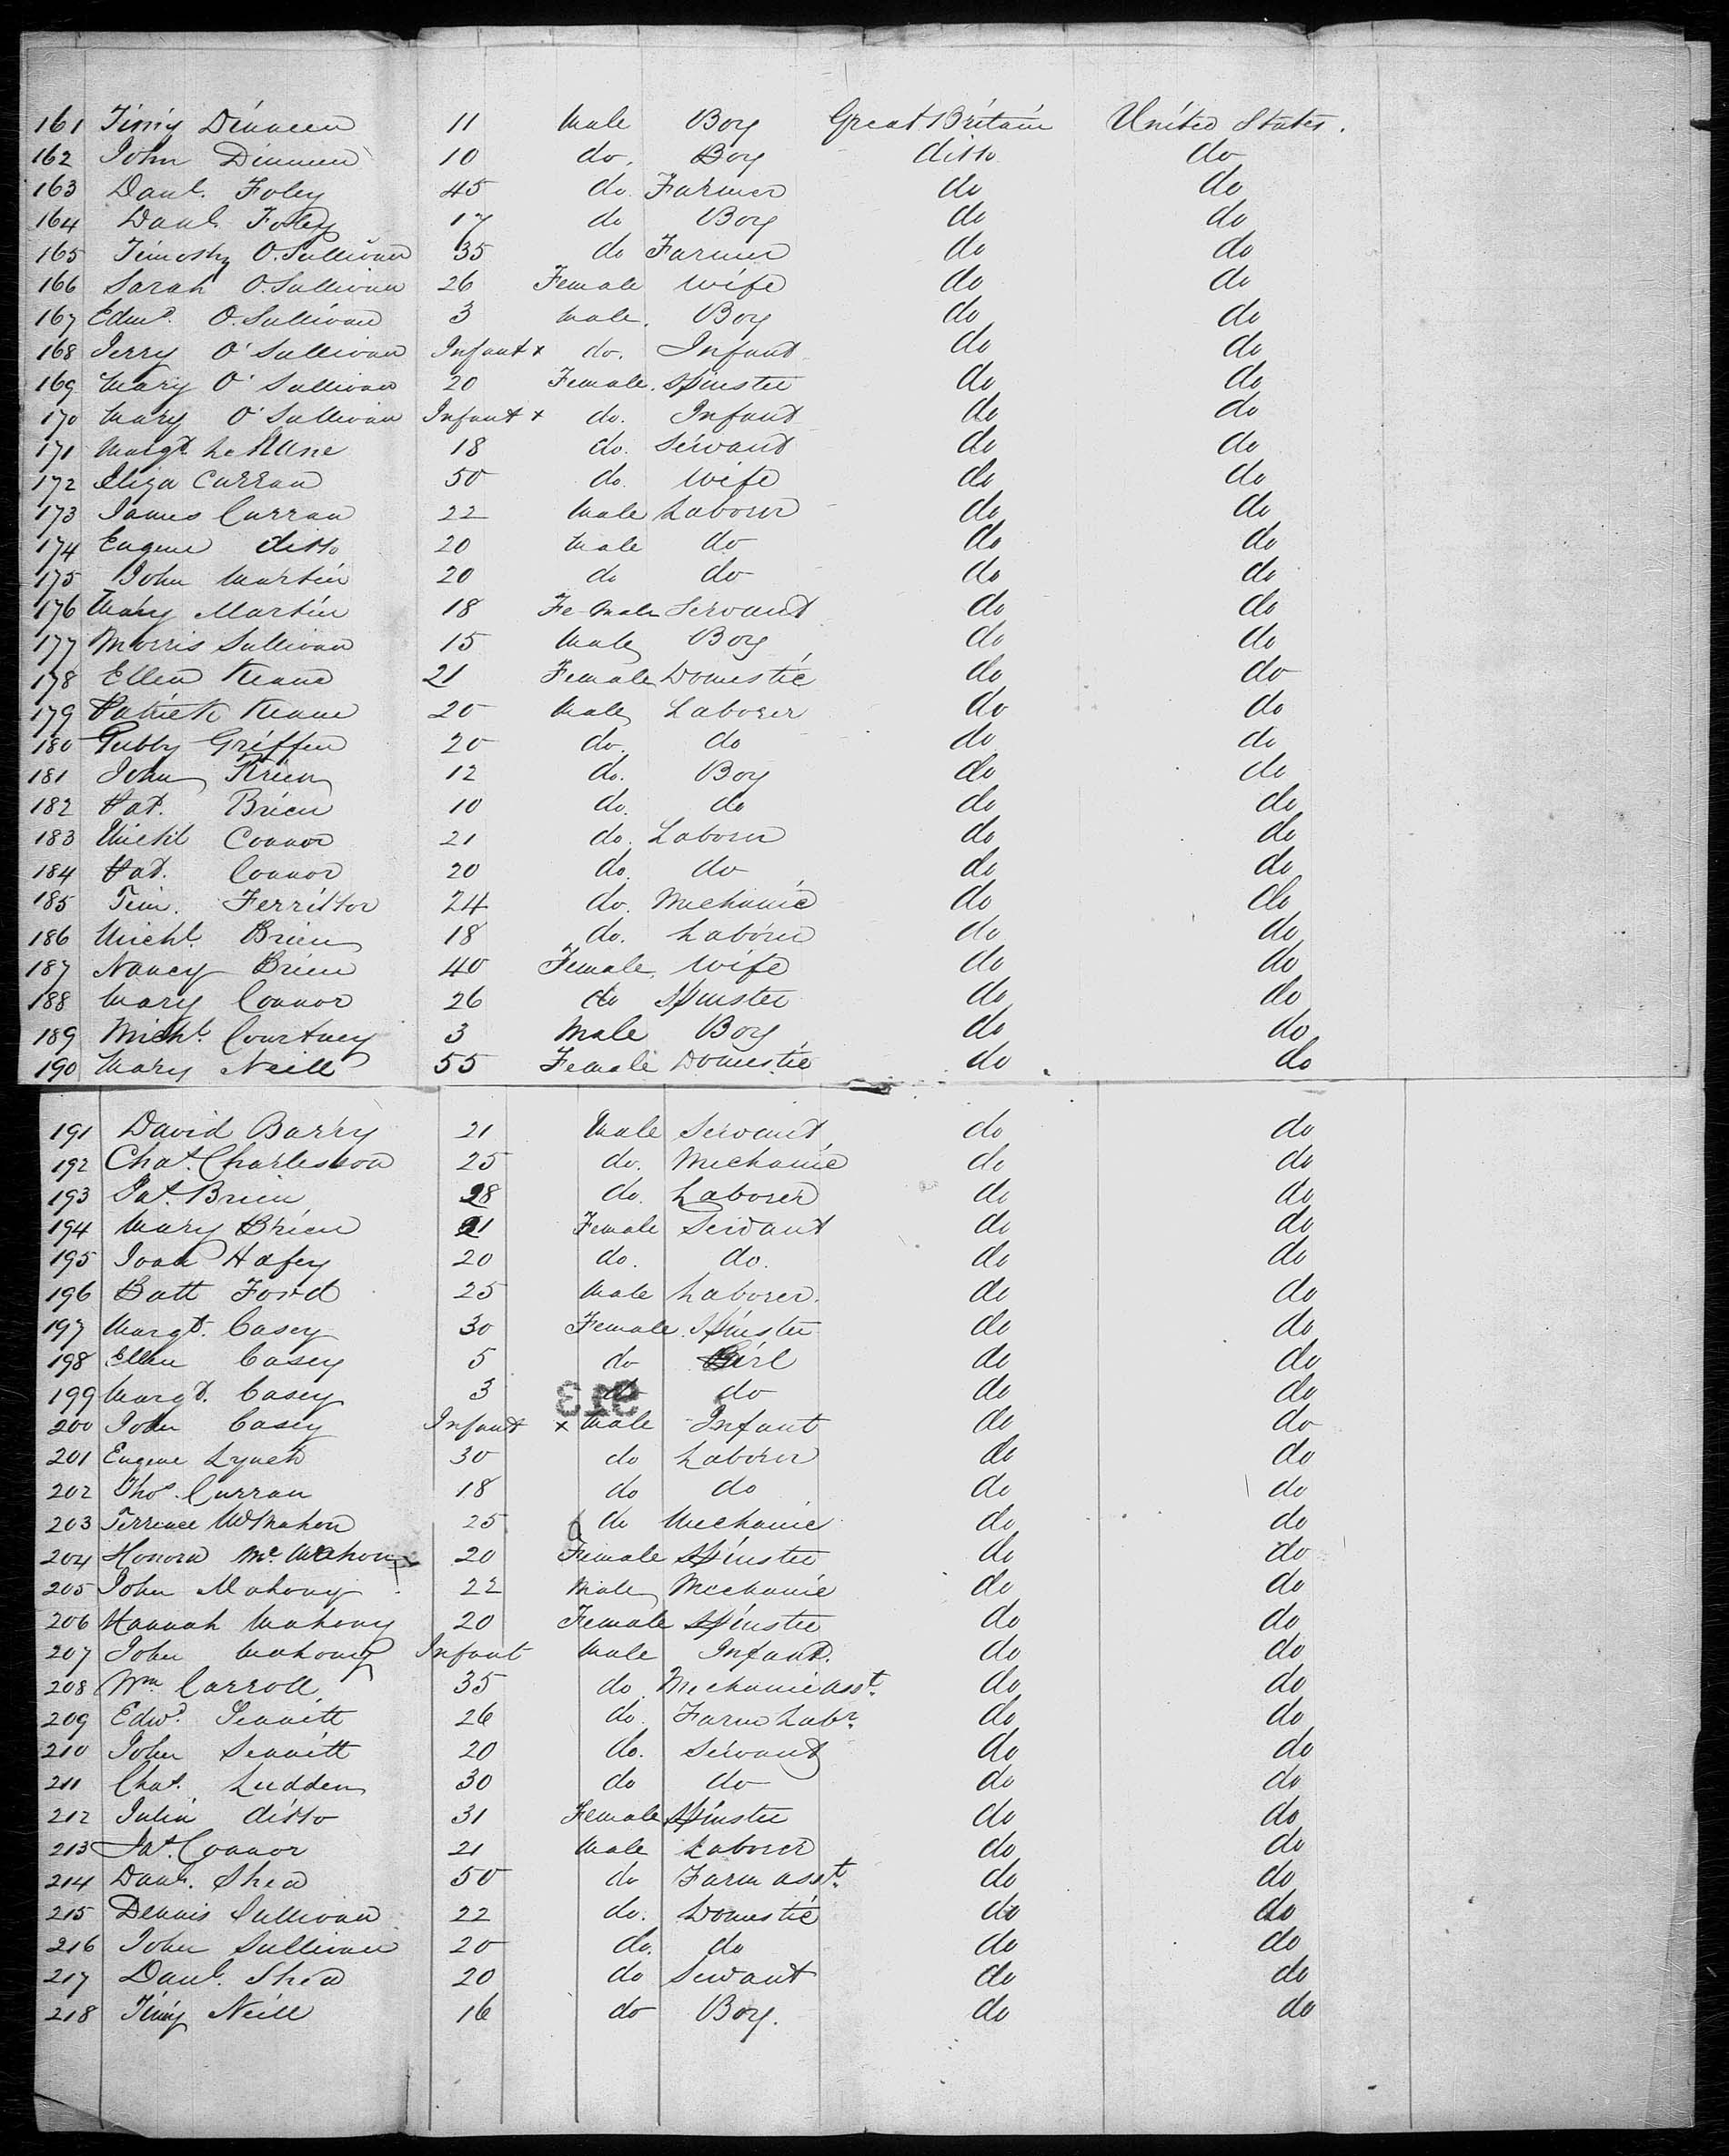 161 Timy Dinneen 11 Male Boy Great Britain United States.
162 John Dinneen 10 do. Boy ditto do
163 Danl. Foley 45 do. Farmer do do
164 Danl. Foley 17 do Boy do do
165 Timothy O.Sullivan 35 do Farmer do do
166 Sarah O.Sullivan 26 Female wife do do
167 Edwd. O.Sullivan 3 Male. Boy do do
168 Jerry O'Sullivan Infant x do. Infant do do
169 Mary O'Sullivan 20 Female. Spinster do do
170 Mary O'Sullivan Infant x do. Infant do do
171 Margt. 18 do. Servant do do
172 Eliza Curran 50 do. Wife do do
173 James Curran 22 Male Laborer do do
174 Eugene ditto 20 Male do do do
175 John Martin 20 do do do do
176 Mary Martin 18 Fe-male Servant do do
177 Morris Sullivan 15 Male Boy do do
178 Ellen Keane 21 Female Domestic do do
179 Patrick Keane 20 Male Laborer do do
180 Griffin 20 do. do do do
181 John Brien 12 do. Boy do do
182 Pat. Brien 10 do. do do do
183 Michl Connor 21 do. Laborer do do
184 Pat. Connor 20 do. do do do
185 Tim. Ferritter 24 do. Mechanic do do
186 Michl. Brien 18 do. Laborer do do
187 Nancy Brien 40 Female. Wife do do
188 Mary Connor 26 do Spinster do do
189 Michl. Courtney 3 Male Boy do do
190 Mary Neill 55 Female Domestic do do
191 David Barry 21 Male Servant do do
192 Chas. Charleston 25 do. Mechanic do do
193 Pat. Brien 28 do. Laborer do do
194 Mary Brien 21 Female Servant do do
195 Joan Hafey 20 do. do. do do
196 Batt Ford 25 Male Laborer. do do
197 Margt. Casey 30 Female. Spinster do do
198 Ellen Casey 5 do Girl do do
199 Margt. Casey 3 do do do do
200 John Casey Infant x Male Infant do do
201 Eugene Lynch 30 do Laborer do do
202 Thos. Curran 18 do do do do
203 Terrence McMahon 25 do Mechanic do do
204 Honora Mc.Mahon 20 Female Spinster do do
205 John Mahony 22 Male Mechanic do do
206 Hannah Mahony 20 Female Spinster do do
207 John Mahony Infant Male Infant. do do
208 Wm Carroll 35 do. Mechanic asst. do do
209 Edwd. Sennett 26 do. Farm Labr. do do
210 John Sennett 20 do. Servant do do
211 Chas. Ludden 30 do do do do
212 Julia ditto 31 Female Spinster do do
213 Jas. Connor 21 Male Laborer do do
214 Danl. Shea 50 do Farm asst. do do
215 Dennis Sullivan 22 do. Domestic do do
216 John Sullivan 20 do. do do do
217 Danl. Shea 20 do Servant do do
218 Timy Neill 16 do Boy. do do